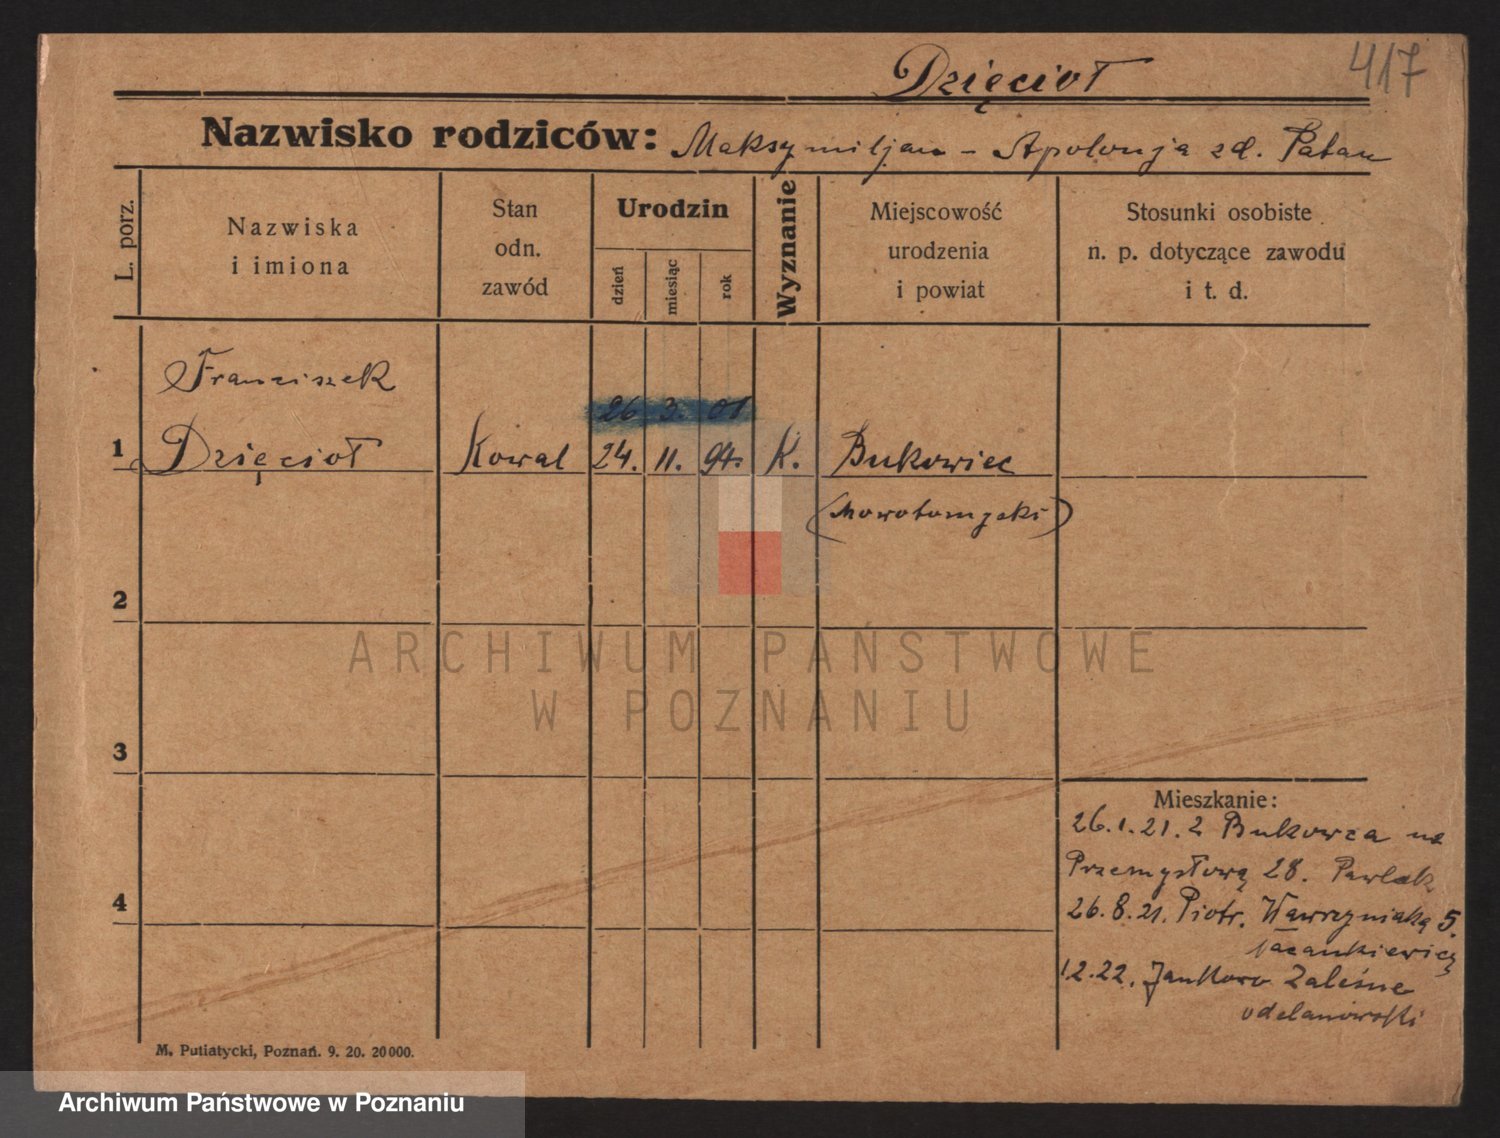 417
Dzięcioł
Nazwisko rodziców: Maksymiljan - Apolonja zd. Patan
L. porz.
Nazwiska
i imiona
Stan
odn.
zawód
Urodzin
dzień
miesiąc
rok
Wyznanie
Miejscowość
urodzenia
i powiat
Stosunki osobiste
n. p. dotyczące zawodu
i t. d.
Franciszek
26 3. 01
1 Dzięcioł Kowal 24. 11. 94. K. Bukowiec
(Nowotomyski)
2
ARCHIWUM PAŃSTWOWE
W POZNANIU
3
Mieszkanie:
26.1.21. z Bukowca na
Przemysłową 28. Pawlak
4
26.8.21. Piotr. Wawrzyniaka 5.
1.2.22. Jankowo Zaleśne
odolanowski
M. Putiatycki, Poznań. 9. 20. 20000.
Archiwum Państwowe w Poznaniu